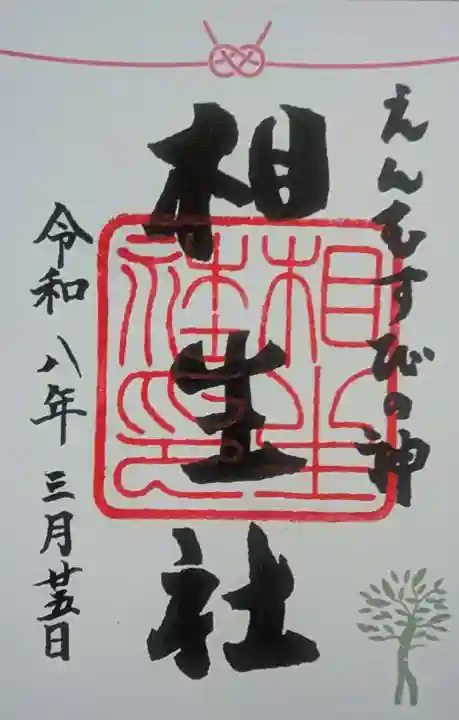 えんむすびの神
相生社
令和八年三月廿五日
相生
社印